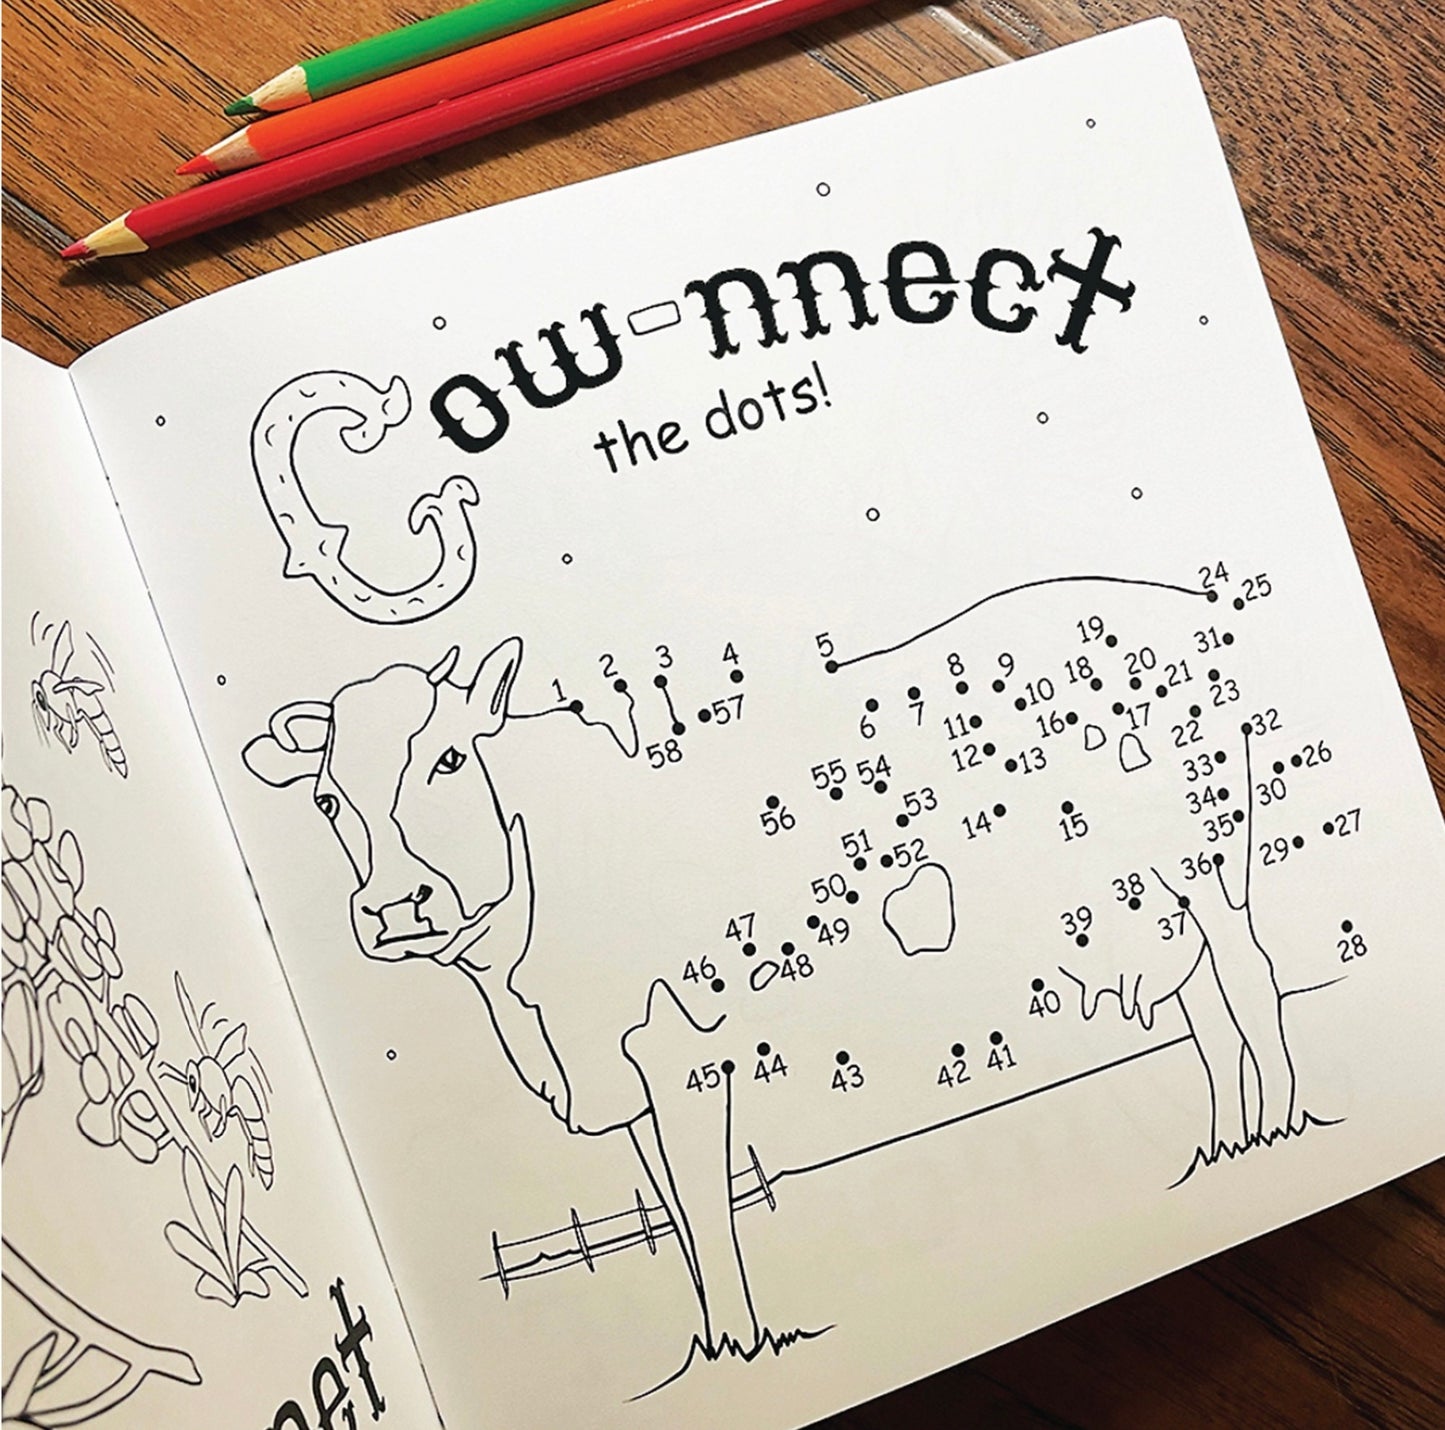 Cow-nnect
the dots!
24
25
5
19
31
2
3
4
8
9
18
20
21
1
10
23
57
6
7
11
16
17
22
32
58
12
13
33
26
55
54
34
30
56
53
14
15
35
27
51
52
36
29
50
38
47
49
39
37
46
48
28
40
45
44
43
42
41